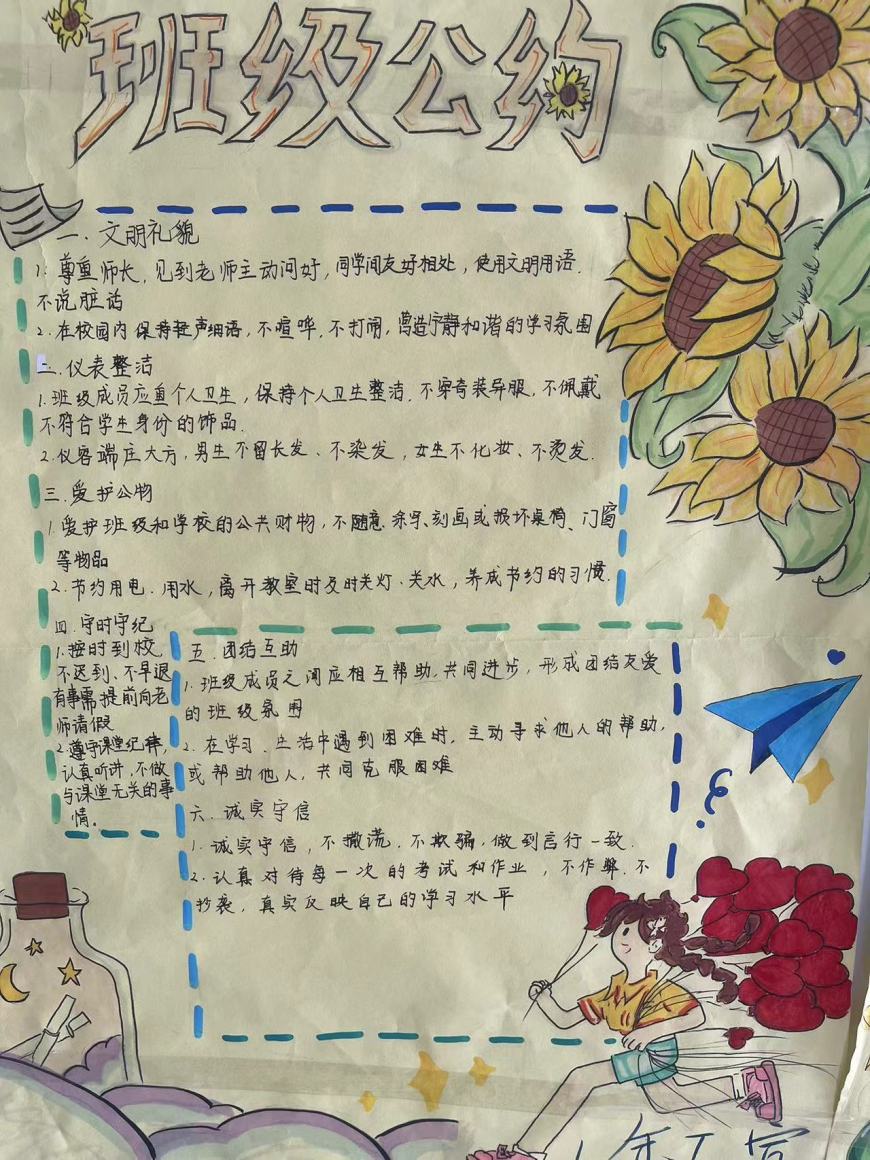 班级公约
一.文明礼貌
1.尊重师长,见到老师主动问好,同学间友好相处,使用文明用语.
不说脏话
2.在校园内保持轻声细语,不喧哗,不打闹,营造宁静和谐的学习氛围
二.仪表整洁
1.班级成员应重个人卫生,保持个人卫生整洁.不穿奇装异服,不佩戴
不符合学生身份的饰品.
2.仪容端庄大方,男生不留长发、不染发,女生不化妆、不烫发.
三.爱护公物
1.爱护班级和学校的公共财物,不随意涂写、刻画或损坏桌椅、门窗
等物品
2.节约用电.用水,离开教室时及时关灯.关水,养成节约的习惯.
四.守时守纪
1.按时到校,
不迟到、不早退
有事需提前向老
师请假
2.遵守课堂纪律,
认真听讲,不做
与课堂无关的事
情。
五.团结互助
1.班级成员之间应相互帮助,共同进步,形成团结友爱
的班级氛围
2.在学习.生活中遇到困难时,主动寻求他人的帮助,
或帮助他人,共同克服困难
六.诚实守信
1.诚实守信,不撒谎.不欺骗,做到言行一致.
2.认真对待每一次的考试和作业,不作弊.不
抄袭,真实反映自己的学习水平